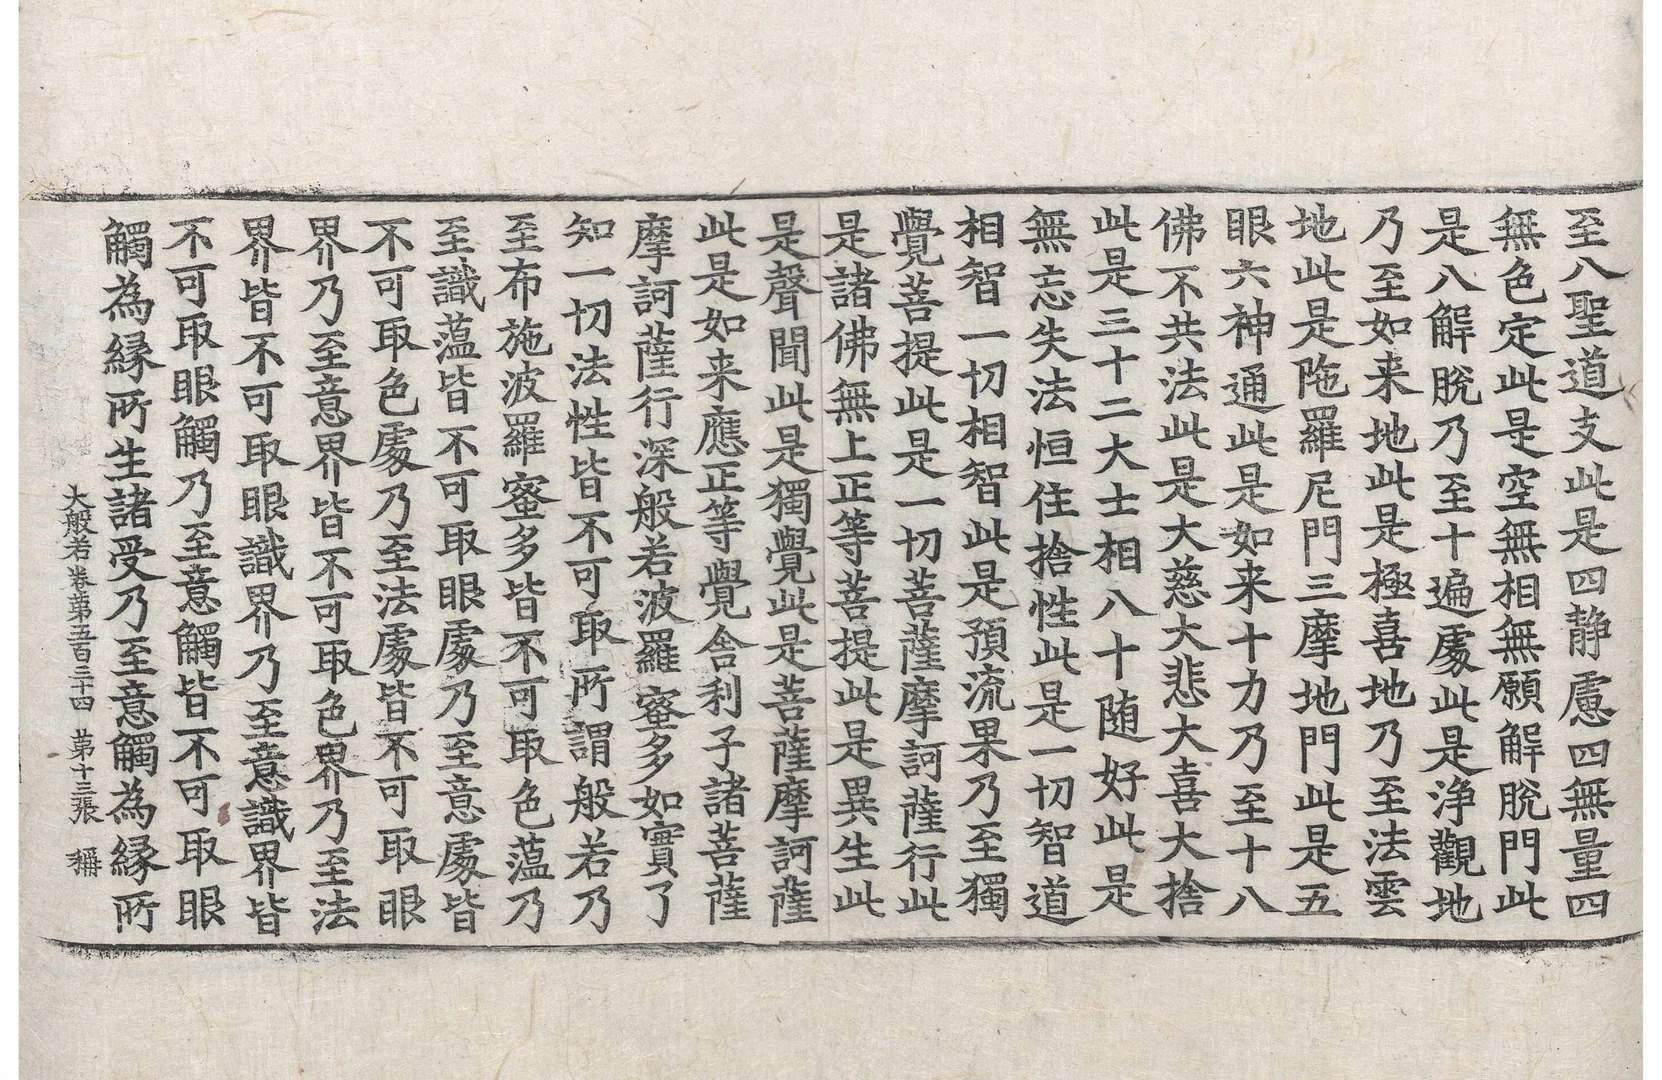 至八聖道支此是四静慮四無量四
無色定此是空無相無願解脫門此
是八解脫乃至十遍處此是淨觀地
乃至如来地此是極喜地乃至法雲
地此是陁羅尼門三摩地門此是五
眼六神通此是如来十力乃至十八
佛不共法此是大慈大悲大喜大捨
此是三十二大士相八十随好此是
無忘失法恒住捨性此是一切智道
相智一切相智此是預流果乃至獨
覺菩提此是一切菩薩摩訶薩行此
是諸佛無上正等菩提此是異生此
是聲聞此是獨覺此是菩薩摩訶薩
此是如来應正等覺舎利子諸菩薩
摩訶薩行深般若波羅蜜多如實了
知一切法性皆不可取所謂般若乃
至布施波羅蜜多皆不可取色蘊乃
至識蘊皆不可取眼處乃至意處皆
不可取色處乃至法處皆不可取眼
界乃至意界皆不可取色界乃至法
界皆不可取眼識界乃至意識界皆
不可取眼觸乃至意觸皆不可取眼
觸為緣所生諸受乃至意觸為緣所
大般若卷第五百三十四 第十三張 稱